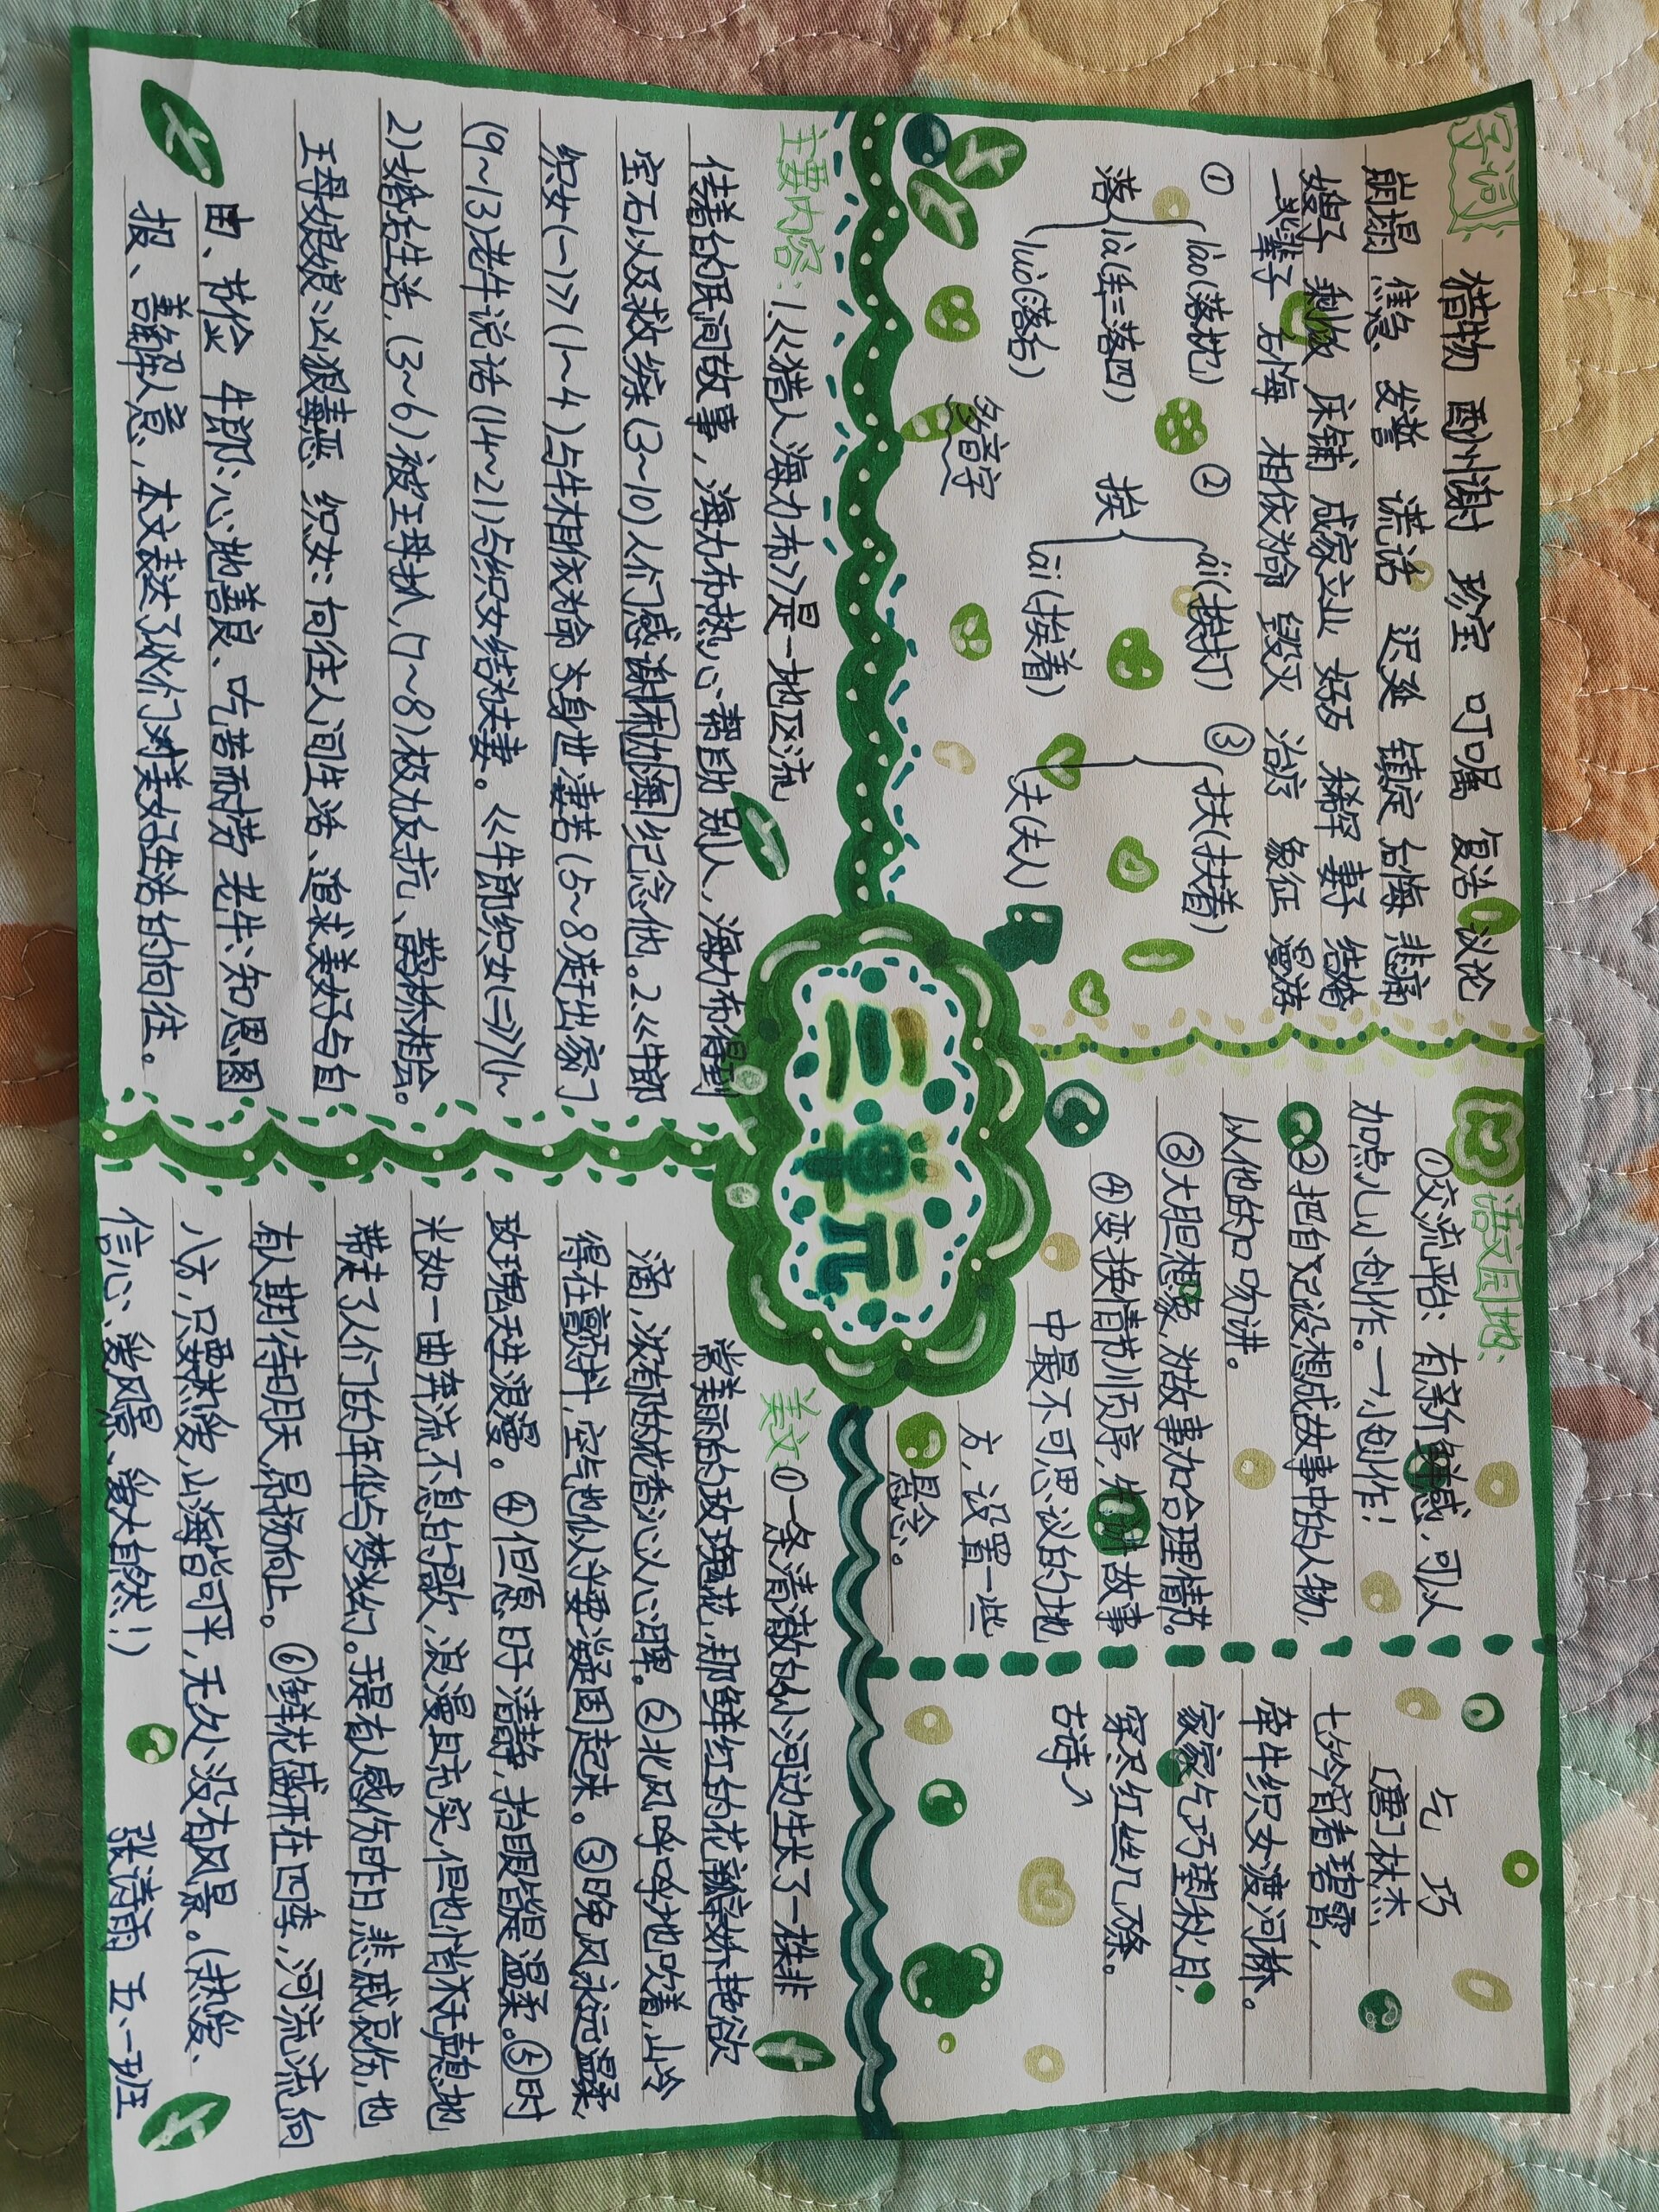 字词
猎物 酬谢 珍宝 叮嘱 复活 议论
崩塌 焦急 发誓 谎话 迟延 镇定 后悔 悲痛
嫂子 剩饭 床铺 成家立业 好歹 稀罕 妻子 结婚
一辈子 无悔 相依为命 毁灭 治疗 象征 漫游
① lào(落枕)
落 là(丢三落四)
luò(落后)
② ái(挨打)
挨
āi(挨着)
③ 扶(扶着)
夫(夫人)
多音字
语文园地:
①交流平台:有新鲜感,可以
加点儿小创作。一小创作!
②把自己设想成故事中的人物,
以他的口吻讲。
③大胆想象,为故事加合理情节。
④变换情节顺序,先讲故事
中最不可思议的地
方,设置一些
悬念。
乞 巧
[唐]林杰
七夕今宵看碧霄,
牵牛织女渡河桥。
家家乞巧望秋月,
穿尽红丝几万条。
古诗↗
三单元
主要内容:1.《猎人海力布》是一地区流
传着的民间故事,海力布热心帮助别人,海力布得到
宝石以及救综(3~10)人们感谢海力布,纪念他。2.《牛郎
织女(一)》(1~4)与牛相依为命 身世凄苦(5~8)走出家门
(9~13)老牛说话(14~21)与织女结为夫妻。《牛郎织女(二)》(1~
2)婚后生活,(3~6)被王母抓,(7~8)极力反抗、鹊桥相会。
王母娘娘:凶狠毒恶 织女:向往人间生活、追求美好与自
由、勤俭 牛郎:心地善良、吃苦耐劳 老牛:知恩图
报、善解人意,本文表达了人们对美好生活的向往。
美文①一条清澈的小河边生长了一株非
常美丽的玫瑰花,那鲜红的花瓣娇艳欲
滴,浓郁的花香沁人心脾。②北风呼呼地吹着,山冷
得在颤抖,空气也似乎要凝固起来。③晚风永远温柔,
玫瑰天生浪漫。④但愿日子清静,抬眼皆是温柔。⑤时
光如一曲奔流不息的歌,浪漫且充实,但也悄无声息地
带走了人们的年华与梦幻。于是有人感伤昨日,悲戚哀伤,也
有人期待明天,昂扬向上。⑥鲜花盛开在四季,河流流向
八方,只要热爱,山海皆可平,无处没有风景。(热爱、
信心、爱风景、爱大自然!)
张清雨 五、一班